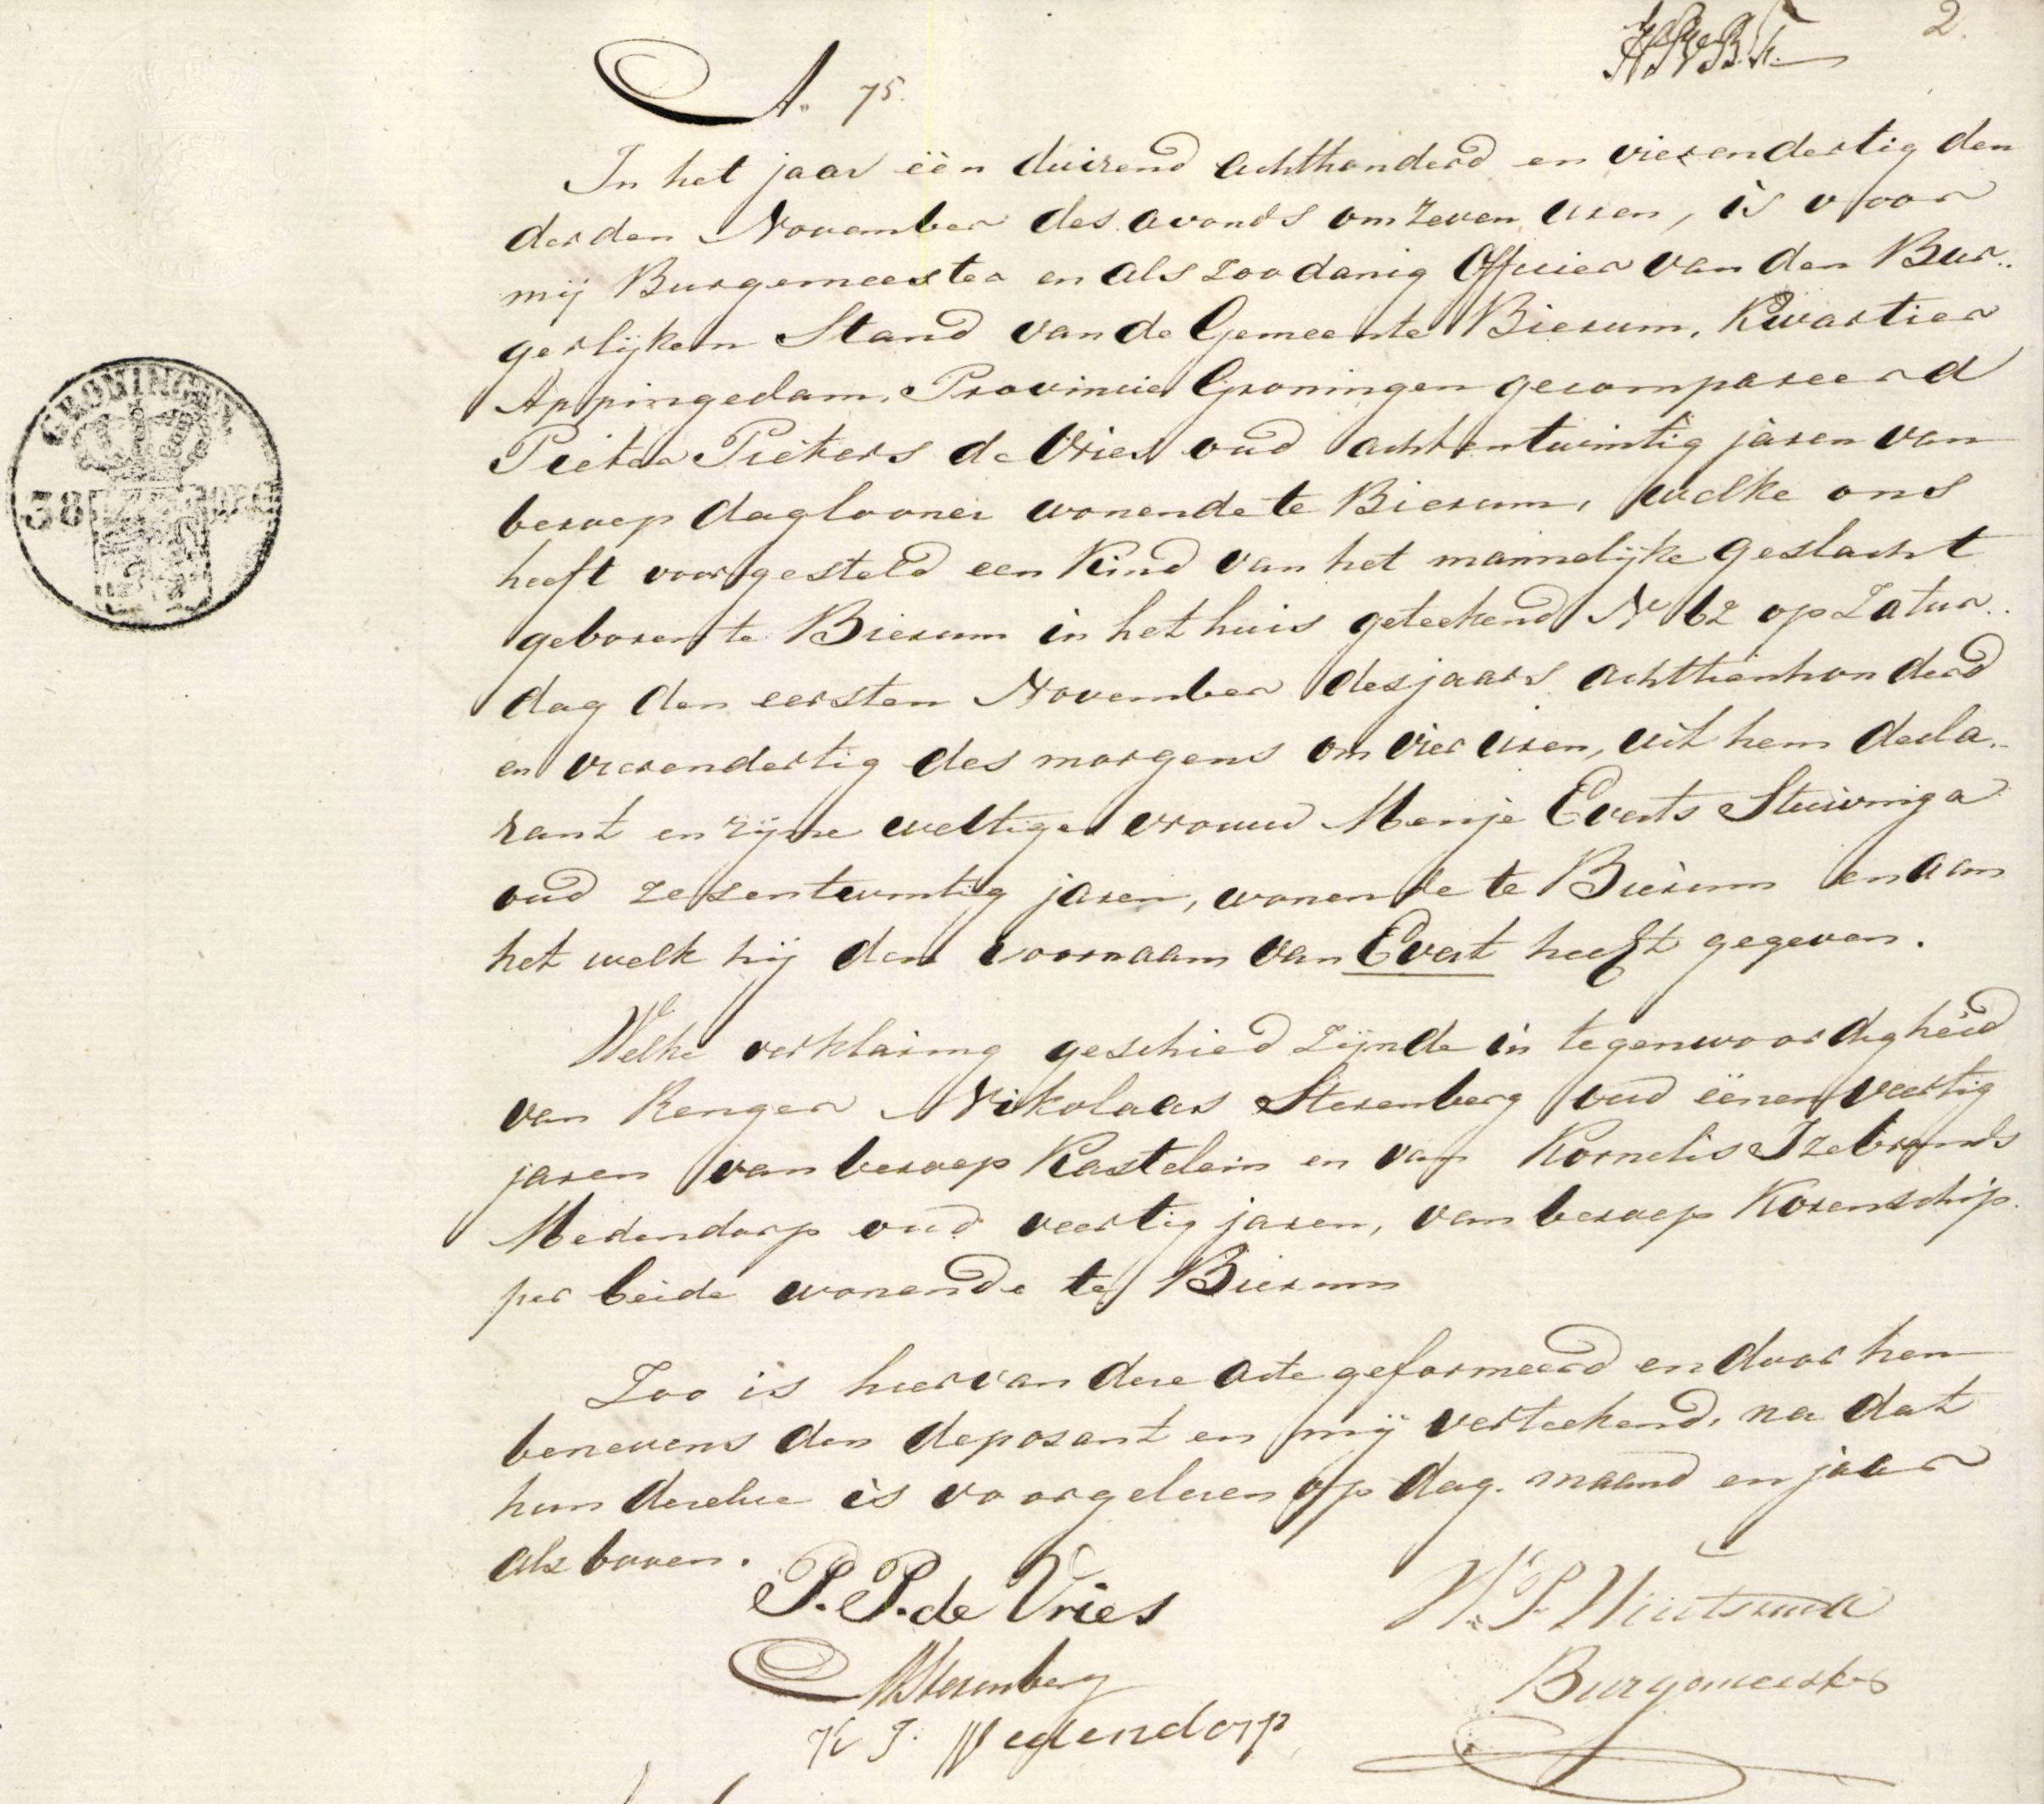 2.
A. 75.
In het jaar één duizend achthonderd en vierendertig den
derden November des avonds om zeven uren, is voor
mij Burgemeester en als zoodanig Officier van den Bur..
gerlijken Stand van de Gemeente Bierum, Kwartier
Appingedam, Provincie Groningen gecompareerd
Pieter Pieters de Vries oud achtentwintig jaren van
beroep daglooner wonende te Bierum, welke ons
heeft voorgesteld een Kind van het mannelijke geslacht
geboren te Bierum in het huis geteekend No 62 op Zatur..
dag den eersten November des jaars achttienhonderd
en vierendertig des morgens om vier uren, uit hem decla..
rant en zijne wettige vrouw Menje Everts Stuivinga
oud zesentwintig jaren, wonende te Bierum en aan
het welk hij den voornaam van Evert heeft gegeven.
Welke verklaring geschied zijnde in tegenwoordigheid
van Renger Nikolaas Sterenberg oud éénenveertig
jaren van beroep Kastelein en van Kornelis Izebrands
Medendorp oud veertig jaren, van beroep Korenschip.
per beide wonende te Bierum
Zoo is hiervan deze acte geformeerd en door hen
benevens den deposant en mij verteekend, na dat
hun dezelve is voorgelezen op dag. maand en jaar
als boven.
P. P. de Vries
Sterenberg
K I. Medendorp
Burgemeester
GRONINGEN
38